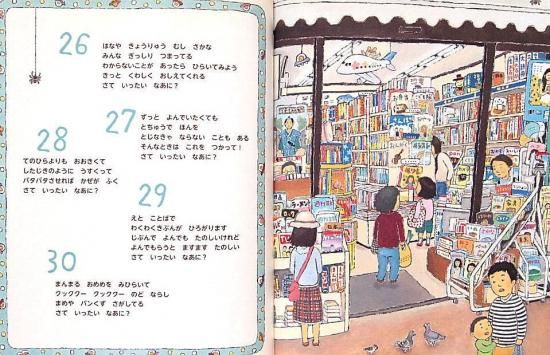 26
はなや きょうりゅう むし さかな
みんな ぎっしり つまってる
わからないことが あったら ひらいてみよう
きっと くわしく おしえてくれる
さて いったい なあに？
27
ずっと よんでいたくても
とちゅうで ほんを
とじなきゃ ならない ことも ある
そんなときは これを つかって！
さて いったい なあに？
28
てのひらよりも おおきくて
したじきのように うすくって
パタパタさせれば かぜが ふく
さて いったい なあに？
29
えと ことばで
わくわくきぶんが ひろがります
じぶんで よんでも たのしいけれど
よんでもらうと ますます たのしい
さて いったい なあに？
30
まんまる おめめを みひらいて
クックグー クックグー のど ならし
まめや パンくず さがしてる
さて いったい なあに？